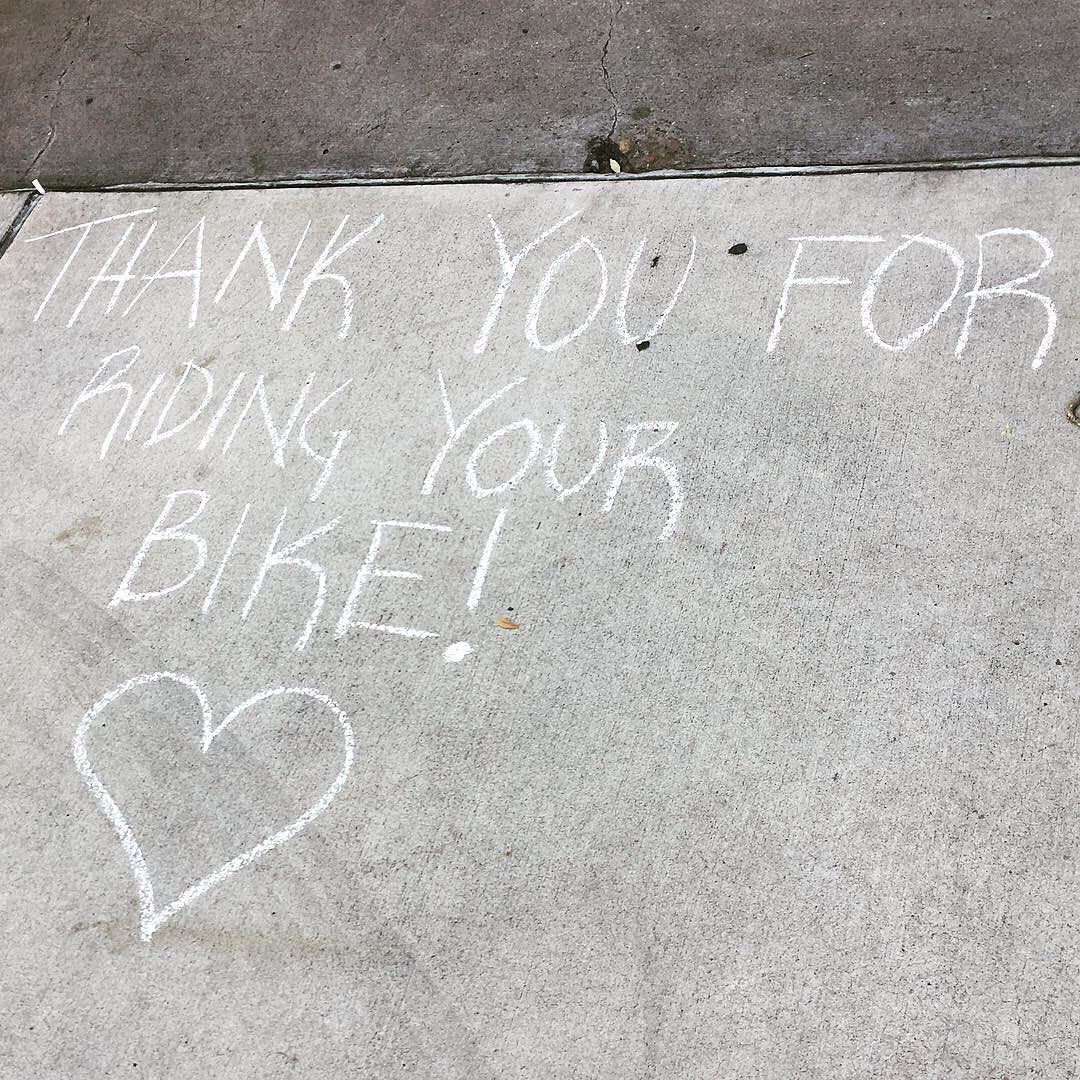 THANK YOU FOR
RIDING YOUR
BIKE!